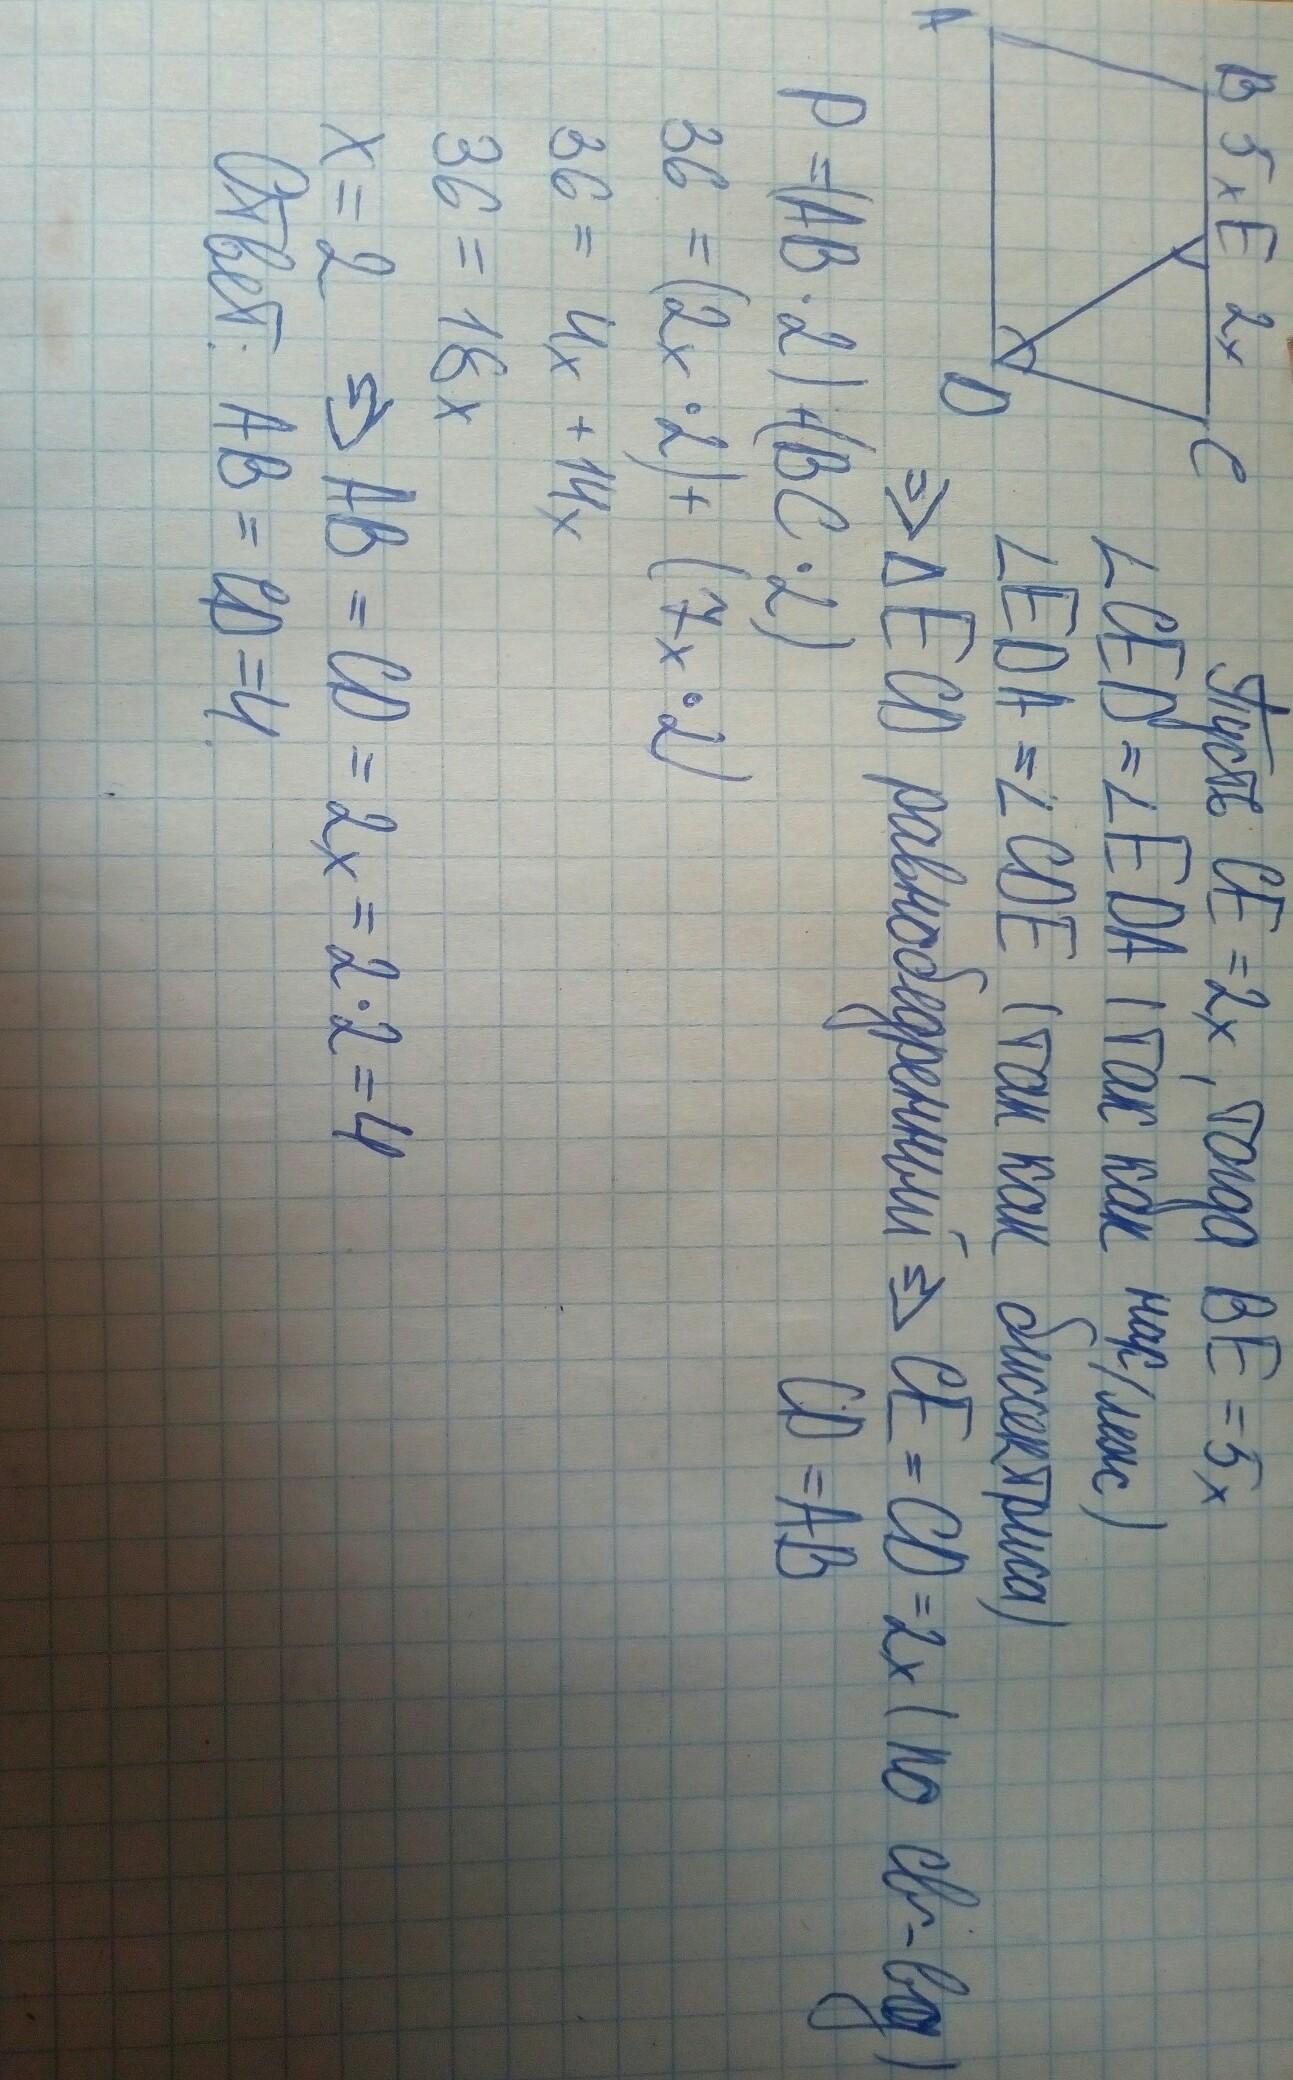 B 5x E 2x C
A D
Пусть CE = 2x, тогда BE = 5x
∠CED = ∠EDA (так как нак/леж)
∠EDA = ∠CDE (так как биссектриса)
⇒ Δ ECD равнобедренный ⇒ CE = CD = 2x (по св-ву)
CD = AB
P = (AB · 2) + (BC · 2)
36 = (2x · 2) + (7x · 2)
36 = 4x + 14x
36 = 18x
x = 2 ⇒ AB = CD = 2x = 2 · 2 = 4
Ответ: AB = CD = 4.